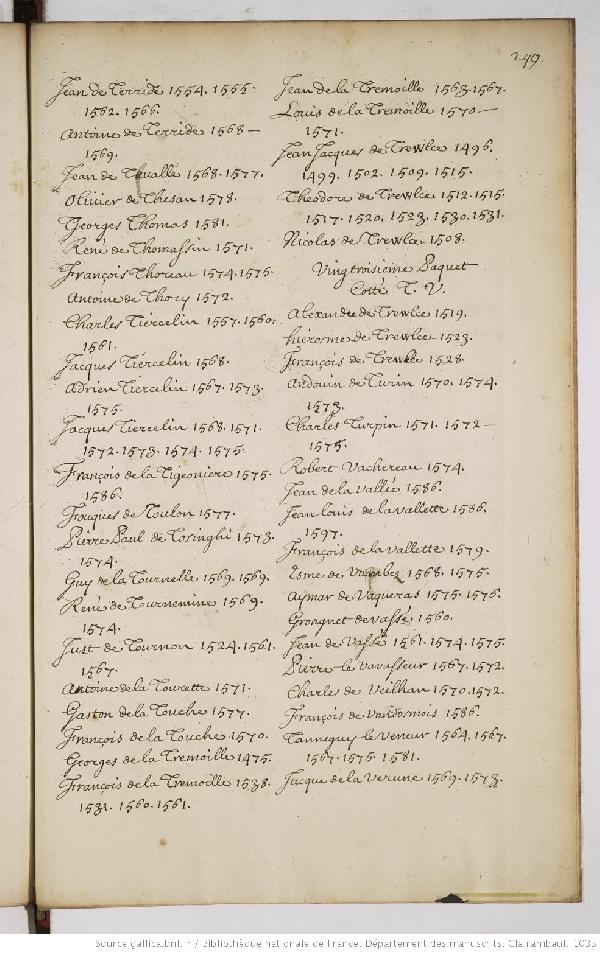 249.
Jean de Terride 1554. 1555.
1562. 1566.
Antoine de Terride 1568 –
1569.
Jean de Thvalle 1568. 1577.
Olivier de Thesan 1578.
Georges Thomas 1581.
René de Thomassin 1571.
François Thoreau 1574. 1575
Antoine de Thory 1572.
Charles Tiercelin 1557. 1560.
1561.
Jacques Tiercelin 1568.
Adrien Tiercelin 1567. 1573.
1575.
Jacques Tiercelin 1568. 1571.
1572. 1573. 1574. 1575.
François de la Tigeoniere 1575.
1586.
Fouques de Toulon 1577.
Pierre Paul de Tosinghi 1573.
1574.
Guy de la Tournelle 1569. 1569.
René de Tournemine 1569.
1574.
Just de Tournon 1524. 1561.
1567.
Antoine de la Tourette 1571.
Gaston de la Touche 1577.
François de la Touche 1570.
Georges de la Tremoille 1475.
François de la Tremoille 1538.
1531. 1560. 1561.
Jean de la Tremoille 1563. 1567.
Louis de la Tremoille 1570. –
1571.
Jean Jacques de Trewlce 1496.
1499. 1502. 1509. 1515.
Theodore de Trewlce 1512. 1515.
1517. 1520. 1523. 1530. 1531.
Nicolas de Trewlce 1508.
Vingtroisieme Paquet
Cotté T. V.
Alexandre de Trewlce 1519.
hierosme de Trewlce 1523.
François de Trewlce 1528.
Andouin de Turin 1570. 1574.
1573.
Charles Turpin 1571. 1572 –
1575.
Robert Vachereau 1574.
Jean de la Vallée 1586.
Jean Louis de la vallette 1586.
1597.
François de la vallette 1579.
Esme de 1568. 1575.
Aymar de Vaqueras 1575. 1576.
Groagnet de vassé 1560.
Jean de Vassé 1561. 1574. 1575.
Pierre le vavasseur 1567. 1572.
Charles de Veilhan 1570. 1572.
François de Vandosmois 1586.
Tanneguy le Veneur 1564. 1567.
1567. 1575. 1581.
Jacque de la Verune 1569. 1573.
Source gallica.bnf.fr / Bibliothèque nationale de France. Département des manuscrits. Clairambault 1035